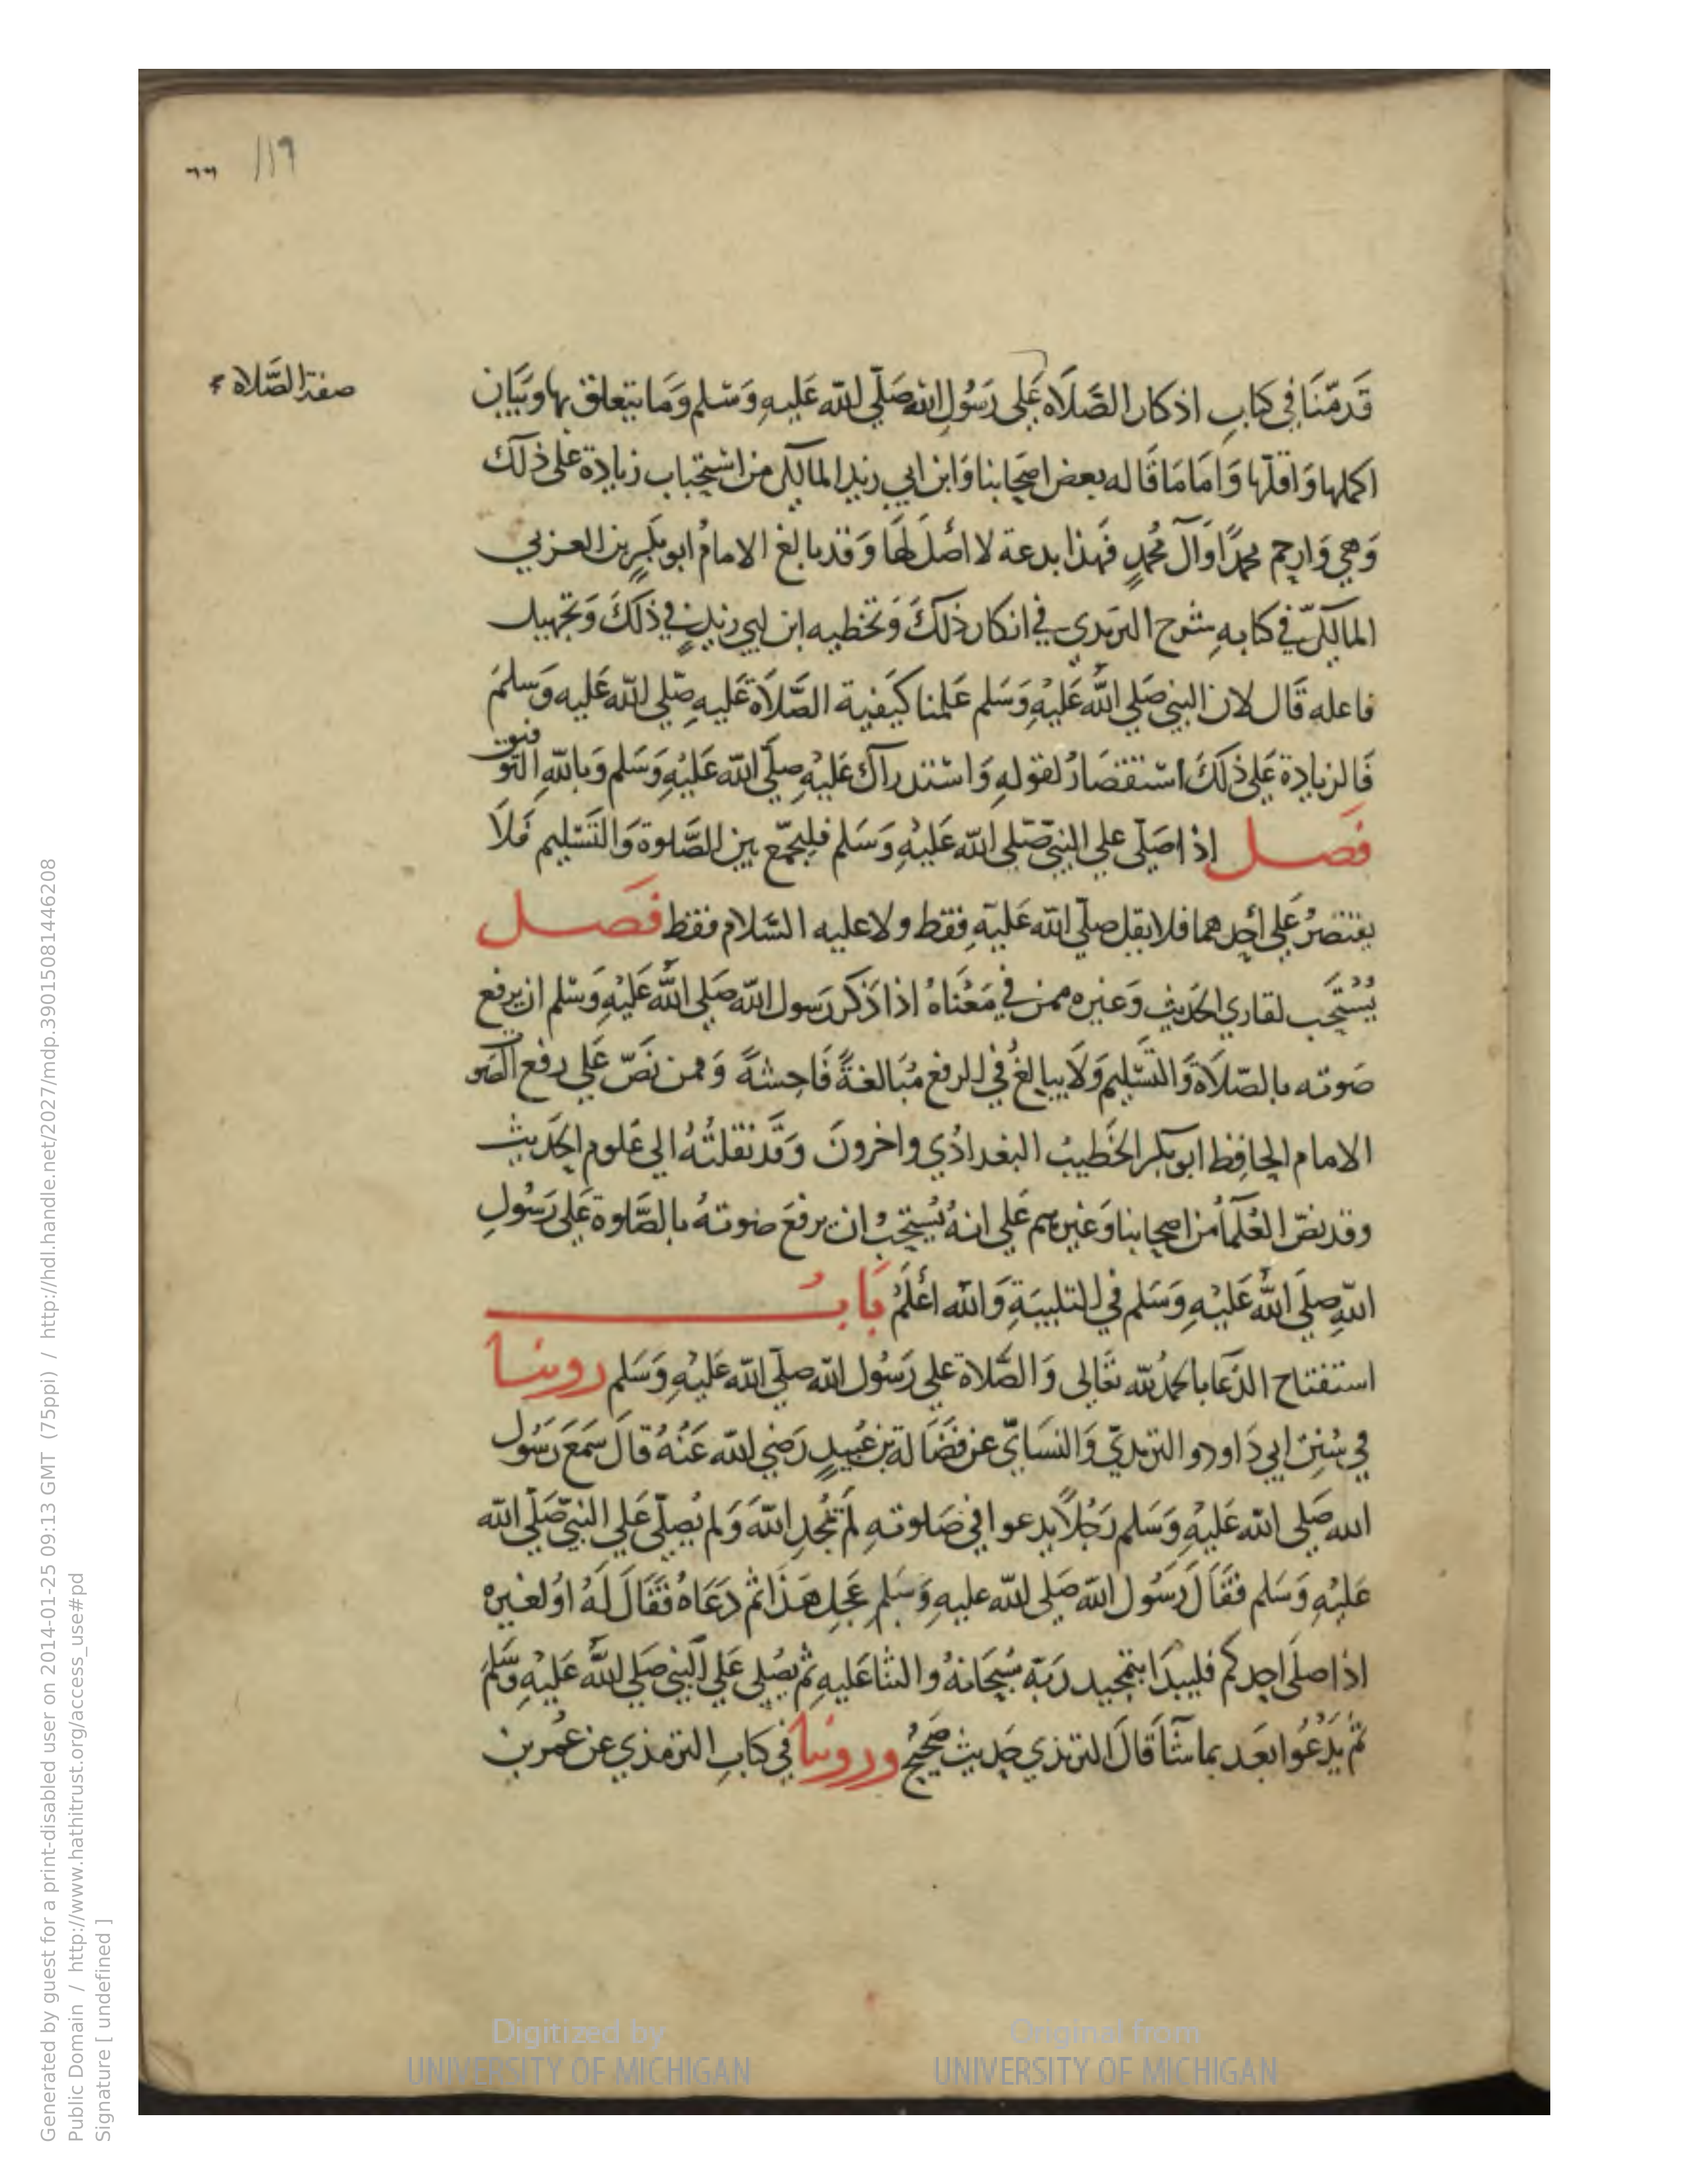 119
صفة الصَّلاة
قَدمّنَا في كتابِ اذكار الصَّلَاه عَلى رَسُولِ الله صَلّي الله عَليهِ وَسَلم وَمَا يتعلق بها وبَيَان
اكملها وَاقلّها وَامَا مَا قَاله بعض اصحَابنا وَابن ابي زيد المالكي من استحِباب زيادة على ذلك
وَهي وَارحم محمدًا وَآل مُحمدٍ فهذا بدعة لا اصْلَ لهَا وَقد بالغ الامامُ ابو بكرٍ بن العربي
المالكيّ في كتابهِ شرح الترمدي في انكار ذلكَ وَتخطيه ابن ابي زيدٍ في ذلكَ وَتجهيل
فاعله قَال لان النبي صَلي اللهُ عَليْهِ وَسَلم عَلمنا كَيفية الصَّلاَة عَليهِ صَلي الله عَليه وَسلمَ
فَالزيادة عَلى ذلكَ استقصَارُ لقولهِ وَاسْتدراك عَليْهِ صلّي الله عَليْهِ وَسَلم وَبالله التوفيق
فصل اذا صَلّي علي النبيّ صَلى الله عَليْهِ وَسَلم فليجمَع بين الصَّلوة وَالتَسْليم فَلَا
يقتصرُ عَلي أحدهما فلا يقل صلّي الله عَليهِ فقط ولا عليه السَّلام فقط فَصل
يُسْتَحب لقاري الحَديث وَغيره ممن في مَعْنَاهُ اذا ذكر رَسول الله صَلي اللهُ عَليْهِ وَسْلم ان يرفع
صَوته بالصّلَاة وَالتسْليم وَلَا يبالغُ في الرفع مُبَالغةً فَاحِشةً وَممن نَصّ عَلي رفع الصَوت
الامام الحافِظ ابو بكر الخَطيبُ البغدادُي واخرونَ وَقَد نقلتُهُ الي عَلوم الحَديث
وقد نصّ العُلَمآُ من اصحابنا وَغيرهم عَلي انهُ يُستحِبُ ان يرفعَ صَوتهُ بالصَّلوة عَلى رَسُولِ
اللهِ صلي اللهُ عَليْهِ وَسَلم في التلبيَةِ وَالله اعْلَمُ بَابُ
استفتاح الدّعَا بالحمدُ لله تعَالى وَالصَّلاة علي رَسُول الله صلّي الله عَليْهِ وَسَلم روينا
في سُننِ ابي دَاود والترمديّ وَالنسَايّ عن فضَالة بن عُبيدٍ رَضي الله عَنْهُ قالَ سَمعَ رَسُول
الله صَلى الله عَليْهِ وَسَلم رَجُلاً يدعوا في صَلوتهِ لمْ يمُجدِ اللهَ وَلم يُصلّي عَلي النبيّ صَلّي الله
عَليْهِ وَسَلم فقَالَ رَسُول الله صَلى الله عليهِ وَسَلم عَجِل هَذا ثم دَعَاهُ فَقَالَ لَهُ اوُ لغيره
اذا صلى احدكم فليبدَا بتمجيد رَبّه سُبحَانهُ والثنا عَليهِ ثم يصُلي عَلي النبي صَلي الله عَليْهِ وَسَّلم
ثم يَدْعُوا بعَد بما شآ قَالَ الترمذي حَديث صَحِيحُ وروينا في كتابِ الترمذي عن عُمر بن